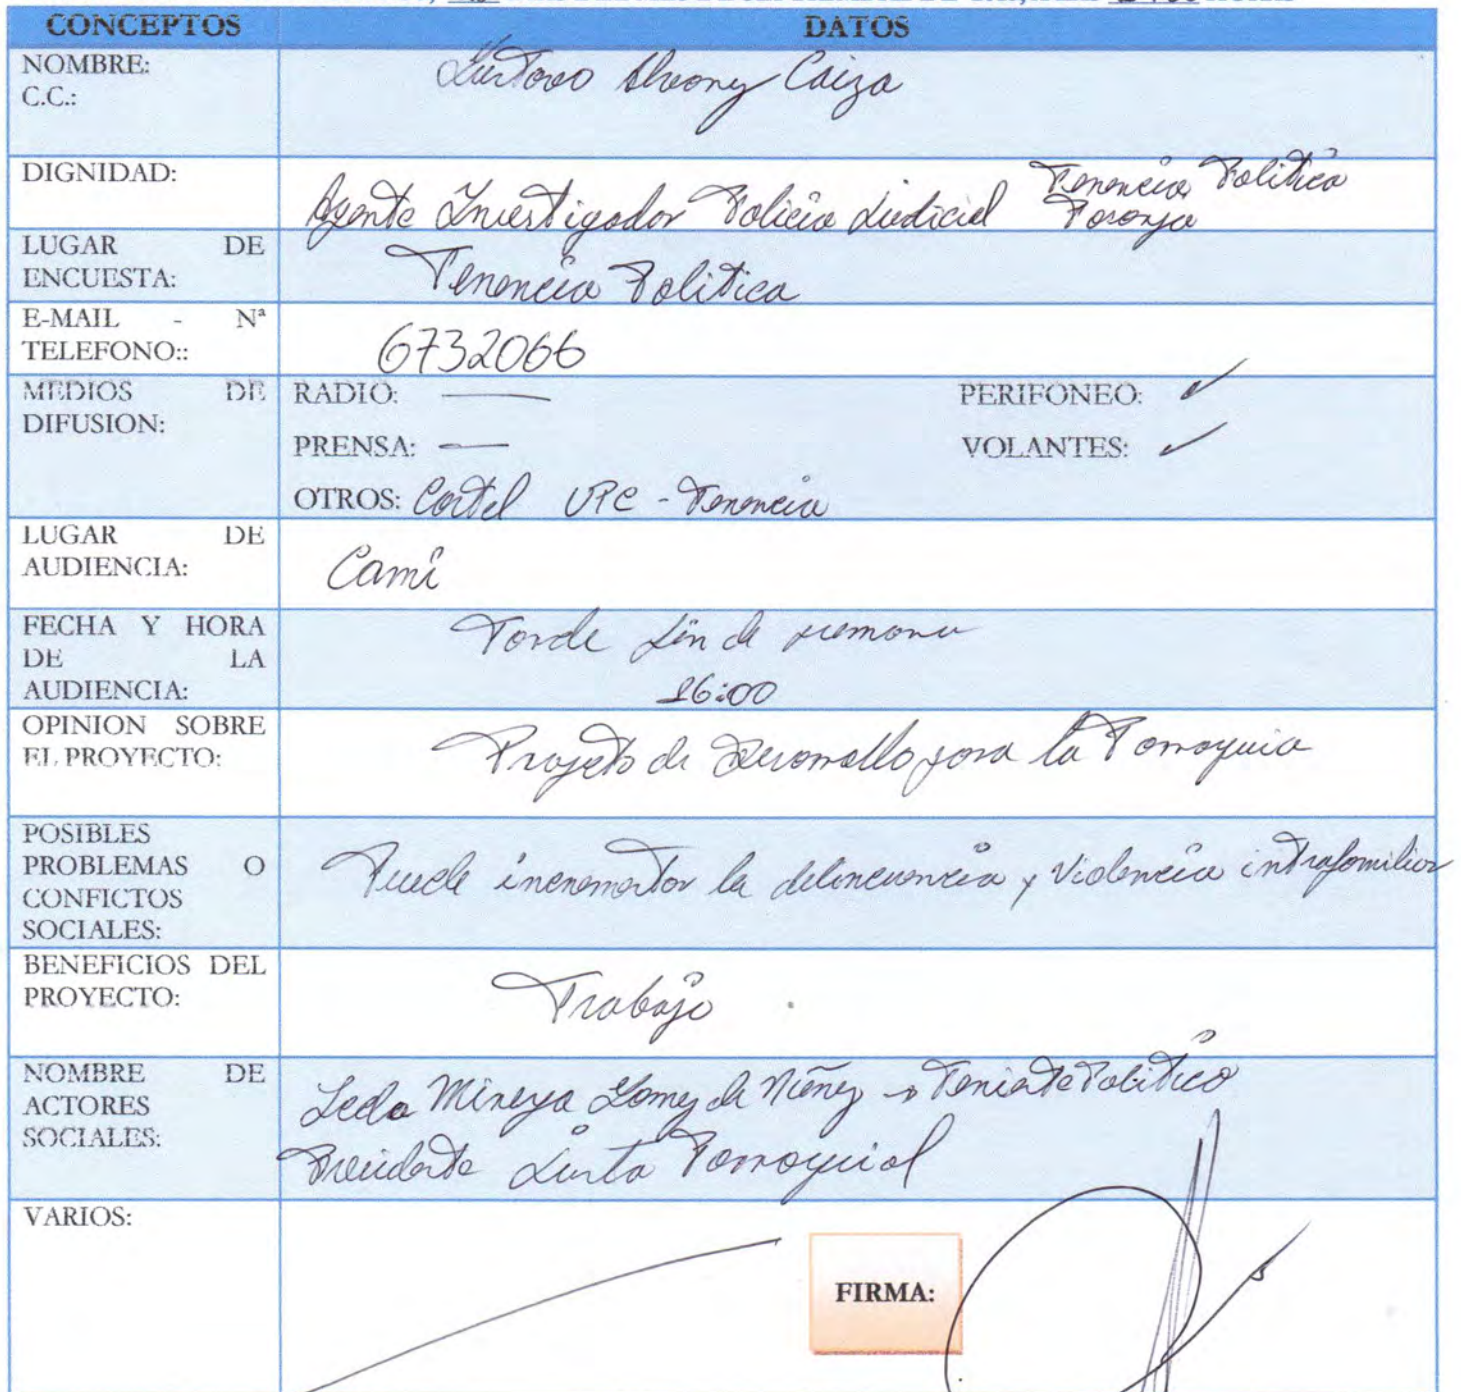 CONCEPTOS DATOS
NOMBRE: Gustavo Caiza
C.C.:
DIGNIDAD: Agente Investigador Policia Judicial Tenencia Politica
LUGAR DE
ENCUESTA: Tenencia Politica
E-MAIL - Nª
TELEFONO:: 6732066
MEDIOS DE
DIFUSION:
RADIO: — PERIFONEO: ✓
PRENSA: — VOLANTES: ✓
OTROS: Cartel UPC - Tenencia
LUGAR DE
AUDIENCIA: Cami
FECHA Y HORA
DE LA
AUDIENCIA:
Tarde fin de semana
16:00
OPINION SOBRE
EL PROYECTO: Proyeto de Desarrollo para la Parroquia
POSIBLES
PROBLEMAS O
CONFICTOS
SOCIALES:
Puede incrementar la delincuencia y Violencia intrafamiliar
BENEFICIOS DEL
PROYECTO: Trabajo
NOMBRE DE
ACTORES
SOCIALES:
Lcda Mireya Gomez de Núñez → Teniente Politico
Presidente Junta Parroquial
VARIOS:
FIRMA: